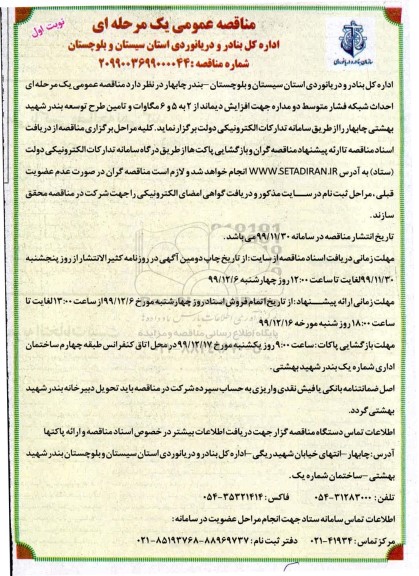 نوبت اول
مناقصه عمومی یک مرحله ای
اداره کل بنادر و دریانوردی استان سیستان و بلوچستان
شماره مناقصه : ۲۰۹۹۰۰۳۶۹۹۰۰۰۰۴۴
اداره کل بنادر و دریانوردی استان سیستان و بلوچستان – بندر چابهار در نظر دارد مناقصه عمومی یک مرحله ای
احداث شبکه فشار متوسط دو مداره جهت افزایش دیماند از ۲ به ۵ و ۶ مگاوات و تامین طرح توسعه بندر شهید
بهشتی چابهار را از طریق سامانه تدارکات الکترونیکی دولت برگزار نماید. کلیه مراحل برگزاری مناقصه از دریافت
اسناد مناقصه تا ارئه پیشنهاد مناقصه گران و بازگشایی پاکت ها از طریق درگاه سامانه تدارکات الکترونیکی دولت
(ستاد) به آدرس WWW.SETADIRAN.IR انجام خواهد شد و لازم است مناقصه گران در صورت عدم عضویت
قبلی ، مراحل ثبت نام در سایت مذکور و دریافت گواهی امضای الکترونیکی را جهت شرکت در مناقصه محقق
سازند.
تاریخ انتشار مناقصه در سامانه ۹۹/۱۱/۳۰ می باشد.
مهلت زمانی دریافت اسناد مناقصه از سایت: از تاریخ چاپ دومین آگهی در روزنامه کثیر الانتشار از روز پنجشنبه
۹۹/۱۱/۳۰ لغایت تا ساعت ۱۲:۰۰ روز چهارشنبه ۹۹/۱۲/۶
مهلت زمانی ارائه پیشنهاد: از تاریخ اتمام فروش اسناد روز چهارشنبه مورخ ۹۹/۱۲/۶ از ساعت ۱۳:۰۰ لغایت تا
ساعت ۱۸:۰۰ روز شنبه مورخه ۹۹/۱۲/۱۶
مهلت بازگشایی پاکات : ساعت ۹:۰۰ روز یکشنبه مورخ ۹۹/۱۲/۱۷ در محل اتاق کنفرانس طبقه چهارم ساختمان
اداری شماره یک بندر شهید بهشتی.
اصل ضمانتنامه بانکی یا فیش نقدی واریزی به حساب سپرده شرکت در مناقصه باید تحویل دبیرخانه بندر شهید
بهشتی گردد.
اطلاعات تماس دستگاه مناقصه گزار جهت دریافت اطلاعات بیشتر در خصوص اسناد مناقصه و ارائه پاکتها
آدرس: چابهار – انتهای خیابان شهید ریگی – اداره کل بنادر و دریانوردی استان سیستان و بلوچستان بندر شهید
بهشتی – ساختمان شماره یک.
تلفن : ۳۱۲۸۳۰۰۰-۰۵۴ فاکس: ۳۵۳۲۱۴۱۴-۰۵۴
اطلاعات تماس سامانه ستاد جهت انجام مراحل عضویت در سامانه:
مرکز تماس : ۴۱۹۳۴-۰۲۱ دفتر ثبت نام : ۸۸۹۶۹۷۳۷-۸۵۱۹۳۷۶۸-۰۲۱